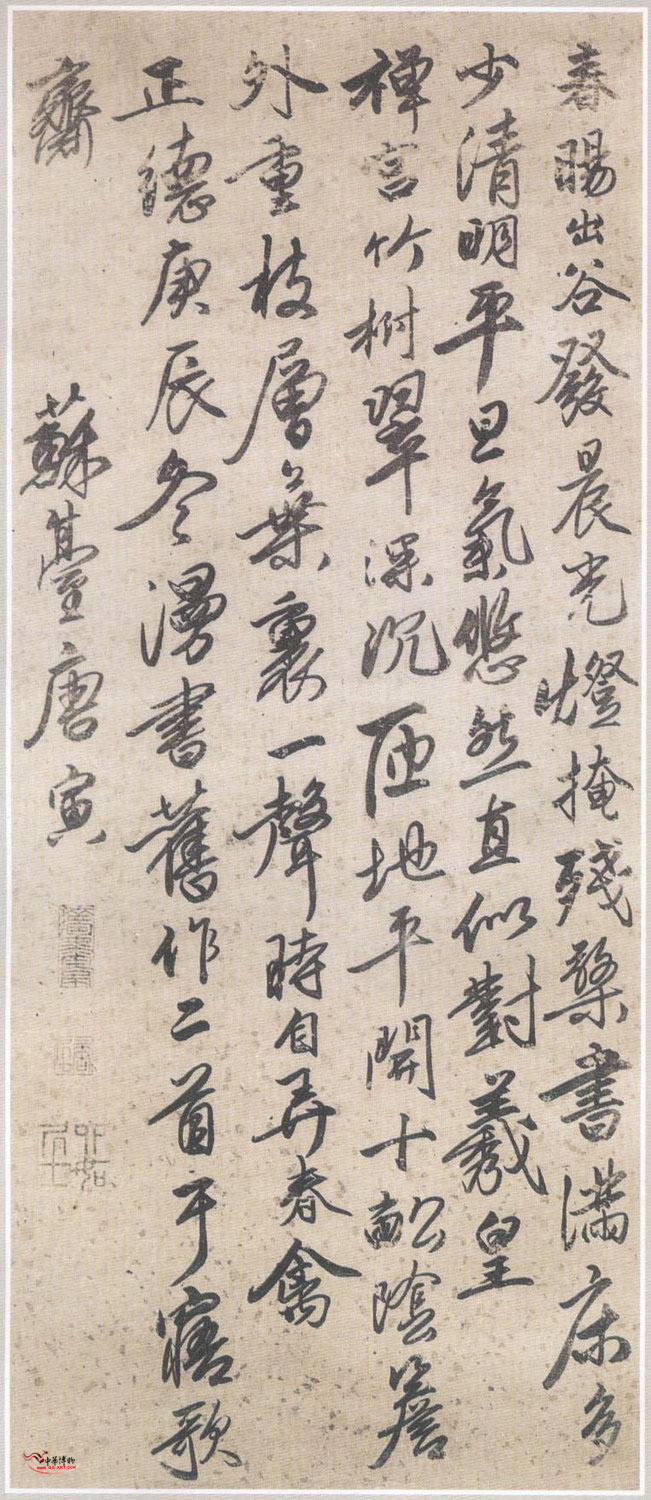 春暘出谷發晨光燈掩殘檠書滿床多
少清明平旦氣悠然直似對羲皇
禅宫竹樹翠深沉匝地平開十畝陰簷
外重枝層葉裏一聲時自弄春禽
正德庚辰冬漫書舊作二首于寤歌
齋
蘇臺唐寅
中華博物